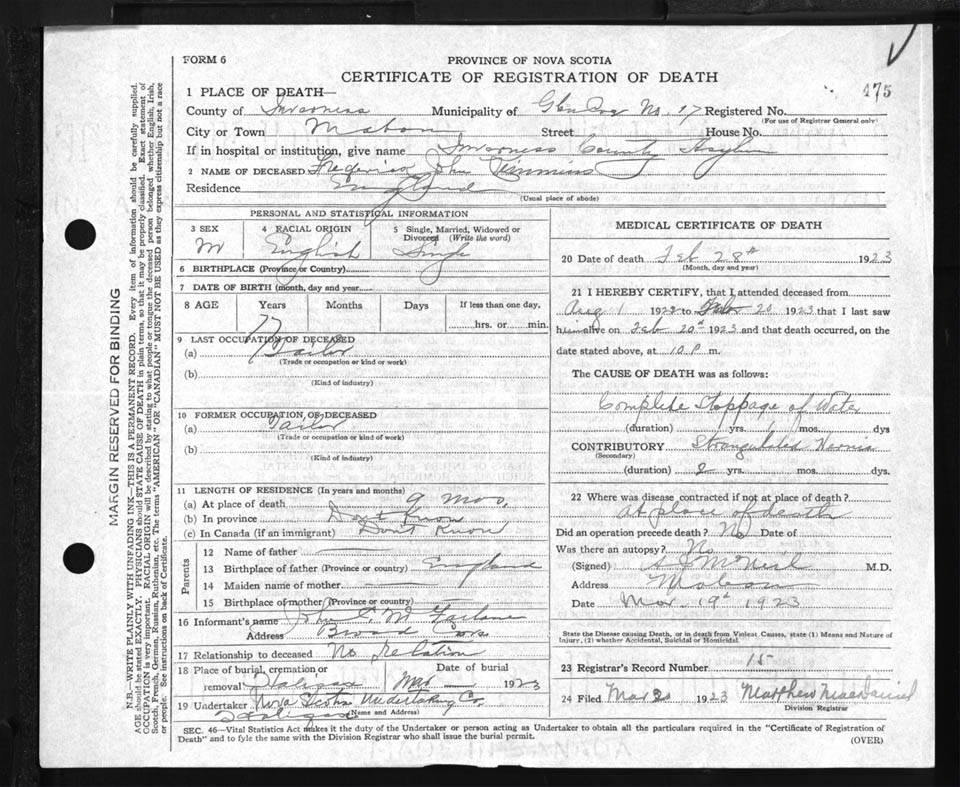 FORM 6
PROVINCE OF NOVA SCOTIA
CERTIFICATE OF REGISTRATION OF DEATH
475
1 PLACE OF DEATH—
County of Inverness Municipality of No. 17 Registered No.
(For use of Registrar General only)
City or Town Mabou Street House No.
If in hospital or institution, give name Inverness County Asylum
2 NAME OF DECEASED Frederick John
Residence England
(Usual place of abode)
PERSONAL AND STATISTICAL INFORMATION
3 SEX M
4 RACIAL ORIGIN English
5 Single, Married, Widowed or Divorced (Write the word) Single
6 BIRTHPLACE (Province or Country)
7 DATE OF BIRTH (month, day and year)
8 AGE Years Months Days If less than one day, hrs. or min.
77
9 LAST OCCUPATION OF DECEASED
(a) Tailor
(Trade or occupation or kind of work)
(b)
(Kind of industry)
10 FORMER OCCUPATION OF DECEASED
(a) Tailor
(Trade or occupation or kind of work)
(b)
(Kind of industry)
11 LENGTH OF RESIDENCE (In years and months)
(a) At place of death 9 Mos.
(b) In province Dont Know
(c) In Canada (if an immigrant) Dont Know
Parents
12 Name of father
13 Birthplace of father (Province or country) England
14 Maiden name of mother
15 Birthplace of mother (Province or country)
16 Informant's name John
Address Broad
17 Relationship to deceased No relation
18 Place of burial, cremation or removal Halifax Date of burial Mar — 1923
19 Undertaker Nova Scotia Undertaking Co.
Halifax (Name and Address)
MEDICAL CERTIFICATE OF DEATH
20 Date of death Feb 28th 1923
(Month, day and year)
21 I HEREBY CERTIFY, that I attended deceased from
Aug 1 1922 to Feb 20 1923 that I last saw
him alive on Feb 20th 1923 and that death occurred, on
date stated above, at 10 P m.
The CAUSE OF DEATH was as follows:
Complete Stoppage of Water
(duration) yrs. 1 mos. dys
CONTRIBUTORY Strangulated Hernia
(Secondary)
(duration) 2 yrs. mos. dys.
22 Where was disease contracted if not at place of death?
At place of death
Did an operation precede death? No Date of
Was there an autopsy? No
(Signed) McNeil M.D.
Address Mabou
Date Mar. 19th 1923
State the Disease causing Death, or in death from Violent Causes, state (1) Means and Nature of
Injury, (2) whether Accidental, Suicidal or Homicidal.
23 Registrar's Record Number 15
24 Filed Mar 1923 Matthew MacDaniel
Division Registrar
SEC. 46—Vital Statistics Act makes it the duty of the Undertaker or person acting as Undertaker to obtain all the particulars required in the "Certificate of Registration of
Death" and to fyle the same with the Division Registrar who shall issue the burial permit.
(OVER)
MARGIN RESERVED FOR BINDING
N.B.—WRITE PLAINLY WITH UNFADING INK—THIS IS A PERMANENT RECORD. Every item of information should be carefully supplied.
AGE should be stated EXACTLY. PHYSICIANS should STATE CAUSE OF DEATH in plain terms, so that it may be properly classified. Exact statement of
OCCUPATION is very important. RACIAL ORIGIN will be described by stating to what people or tongue the deceased person belonged whether English, Irish,
Scotch, French, German, Russian, Ruthenian, etc. The terms "AMERICAN" or "CANADIAN" MUST NOT BE USED as they express citizenship but not a race
or people. See instructions on back of Certificate.